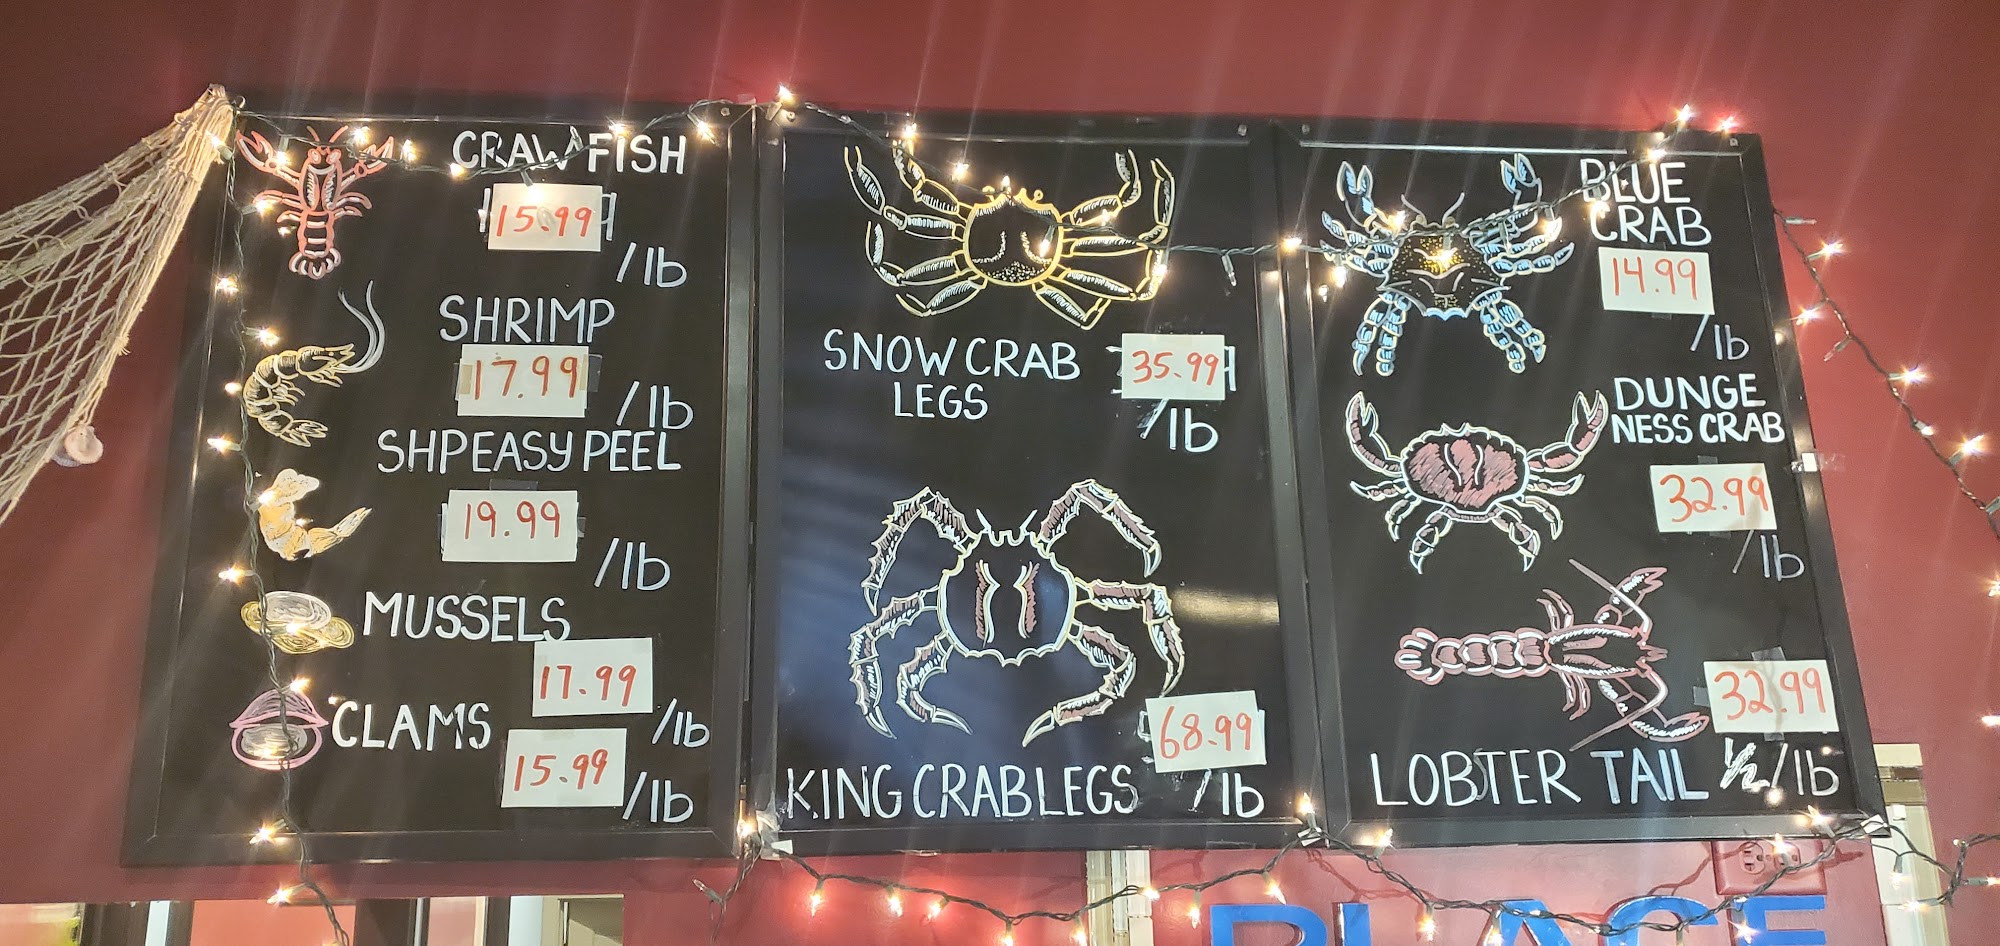 CRAWFISH
15.99
/lb
SHRIMP
17.99
/lb
SHPEASY PEEL
19.99
/lb
MUSSELS
17.99
/lb
CLAMS
15.99
/lb
SNOW CRAB
LEGS
35.99
/lb
KING CRAB LEGS
68.99
/lb
BLUE
CRAB
14.99
/lb
DUNGE
NESS CRAB
32.99
/lb
LOBTER TAIL
32.99
1/2/lb
PLACE